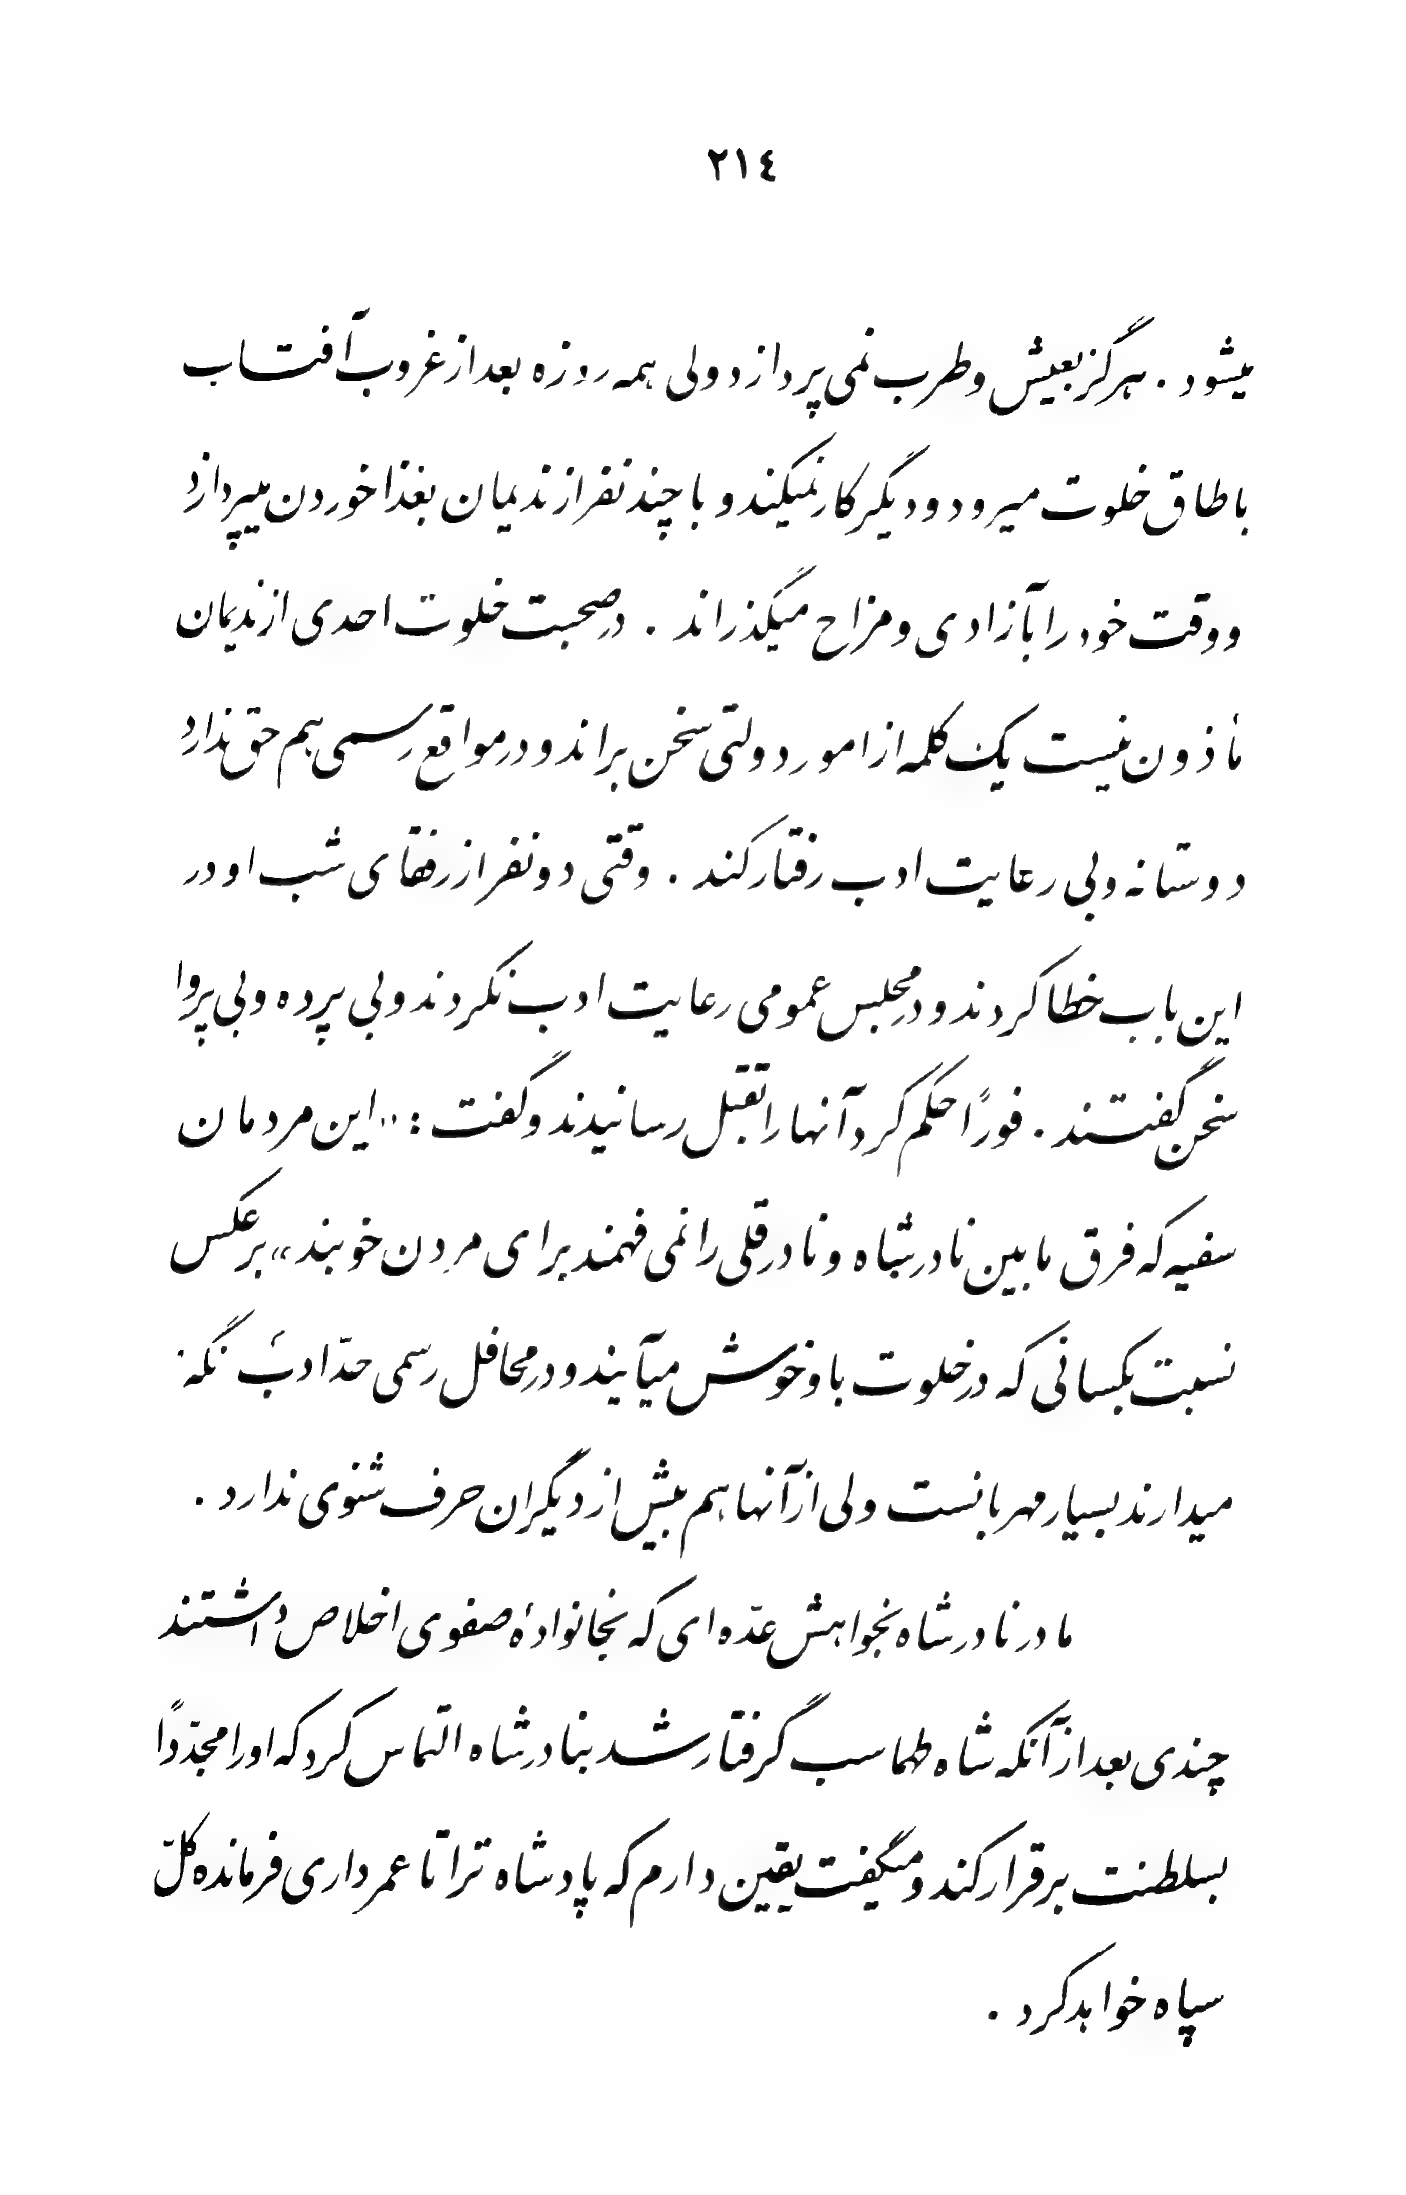 ٢١٤
میشود . هرگز بعیش و طرب نمی پردازد ولی همه روزه بعد از غروب آفتاب
باطاق خلوت میرود و دیگر کار نمیکند و با چند نفر از ندیمان بغذا خوردن میپردازد
و وقت خود را بآزادی و مزاح میگذراند . در صحبت خلوت احدی از ندیمان
مأذون نیست یک کلمه از امور دولتی سخن براند و در مواقع رسمی هم حق ندارد
دوستانه و بی رعایت ادب رفتار کند . وقتی دو نفر از رفقای شب او در
این باب خطا کردند و در مجلس عمومی رعایت ادب نکردند و بی پرده و بی پروا
سخن گفتند . فورًا حکم کرد آنها را بقتل رسانیدند و گفت : «این مردمان
سفیه که فرق مابین نادرشاه و نادرقلی را نمی فهمند برای مردن خوبند» برعکس
نسبت بکسانی که در خلوت باو خوش میآیند و در محافل رسمی حدّ ادب نگه
میدارند بسیار مهربانست ولی از آنها هم بیش از دیگران حرف شنوی ندارد .
مادر نادرشاه بخواهش عدّه ای که بخانوادهٔ صفوی اخلاص داشتند
چندی بعد از آنکه شاه طهماسب گرفتار شد بنادرشاه التماس کرد که او را مجدّدًا
بسلطنت برقرار کند و میگفت یقین دارم که پادشاه ترا تا عمر داری فرمانده کلّ
سپاه خواهد کرد .